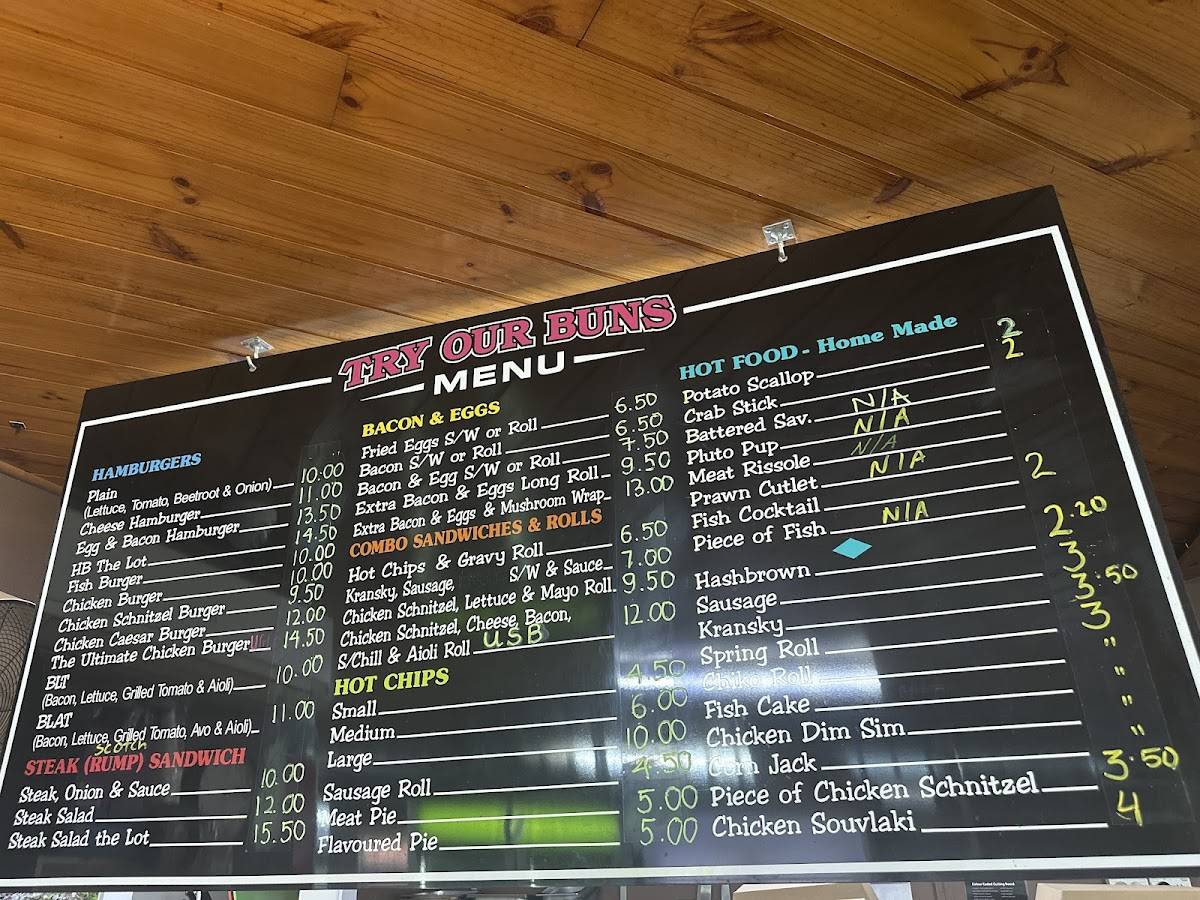 TRY OUR BUNS
MENU
HAMBURGERS
Plain
(Lettuce, Tomato, Beetroot & Onion) 10.00
Cheese Hamburger 11.00
Egg & Bacon Hamburger 13.50
HB The Lot 14.50
Fish Burger 10.00
Chicken Burger 10.00
Chicken Schnitzel Burger 9.50
Chicken Caesar Burger 12.00
The Ultimate Chicken Burger 14.50
BLT
(Bacon, Lettuce, Grilled Tomato & Aioli) 10.00
BLAT
(Bacon, Lettuce, Grilled Tomato, Avo & Aioli) 11.00
Scotch
STEAK (RUMP) SANDWICH
Steak, Onion & Sauce 10.00
Steak Salad 12.00
Steak Salad the Lot 15.50
BACON & EGGS
Fried Eggs S/W or Roll 6.50
Bacon S/W or Roll 6.50
Bacon & Egg S/W or Roll 7.50
Extra Bacon & Eggs Long Roll 9.50
Extra Bacon & Eggs & Mushroom Wrap 13.00
COMBO SANDWICHES & ROLLS
Hot Chips & Gravy Roll 6.50
Kransky, Sausage, S/W & Sauce 7.00
Chicken Schnitzel, Lettuce & Mayo Roll 9.50
Chicken Schnitzel, Cheese, Bacon,
S/Chill & Aioli Roll USB 12.00
HOT CHIPS
Small 4.50
Medium 6.00
Large 10.00
Sausage Roll 4.50
Meat Pie 5.00
Flavoured Pie 5.00
HOT FOOD - Home Made
Potato Scallop 2
Crab Stick 2
Battered Sav. N/A
Pluto Pup N/A
Meat Rissole N/A
Prawn Cutlet N/A
Fish Cocktail 2
Piece of Fish N/A
Hashbrown 2.20
Sausage 3
Kransky 3.50
Spring Roll 3
Chiko Roll "
Fish Cake "
Chicken Dim Sim "
Corn Jack "
Piece of Chicken Schnitzel 3.50
Chicken Souvlaki 4